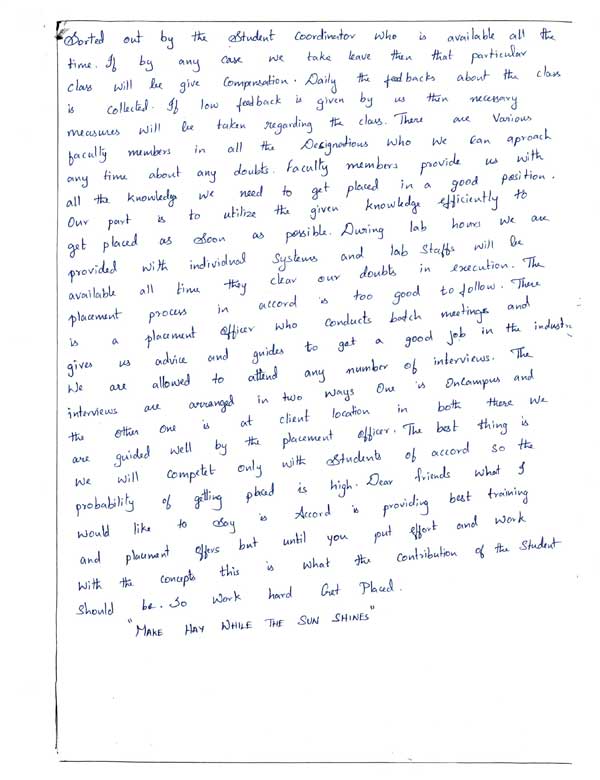 Sorted out by the Student Coordinator who is available all the
time. If by any case we take leave then that particular
class will be give Compensation. Daily the feedbacks about the class
is collected. If low feedback is given by us then necessary
measures will be taken regarding the class. There are Various
faculty members in all the Designations who we can aproach
any time about any doubts. Faculty members provide us with
all the knowledge we need to get placed in a good position.
Our part is to utilize the given knowledge efficiently to
get placed as soon as possible. During lab hours we are
provided with individual Systems and lab Staffs will be
available all time they clear our doubts in execution. The
placement process in accord is too good to follow. There
is a placement officer who conducts batch meetings and
gives us advice and guides to get a good job in the industry
We are allowed to attend any number of interviews. The
interviews are arranged in two ways One is OnCampus and
the other one is at client location in both there we
are guided well by the placement officer. The best thing is
we will competet only with Students of accord so the
probability of getting placed is high. Dear friends what I
would like to say is Accord is providing best training
and placement offers but until you put effort and work
with the concepts this is what the contribution of the Student
should be. So work hard Get Placed.
"MAKE HAY WHILE THE SUN SHINES"